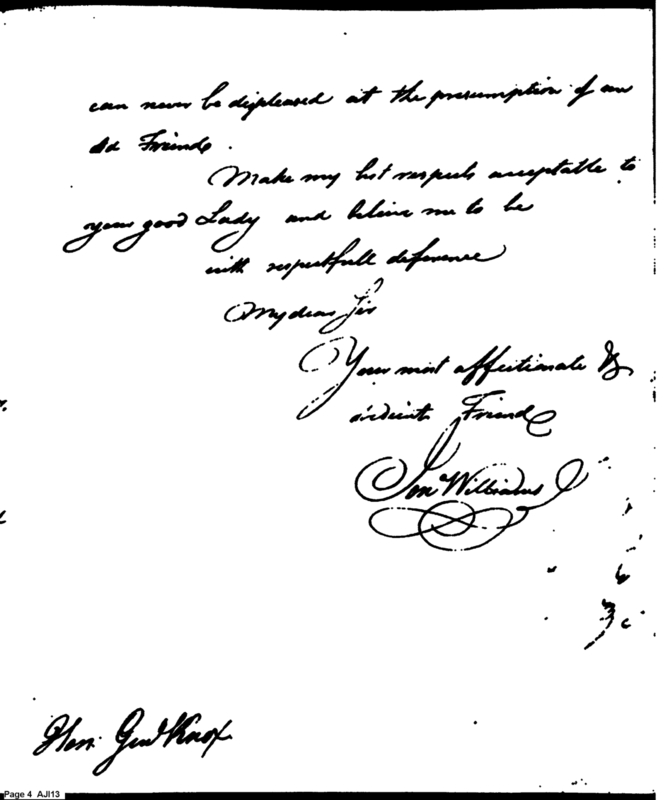 can never be displeased at the presumption of an
old Friend.
Make my best respects acceptable to
your good Lady and believe me to be
with respectfull deference
My dear Sir
Your most affectionate &
obedient Friend
Jon Williams
Hon: Genl Knox
Page 4 AJI13